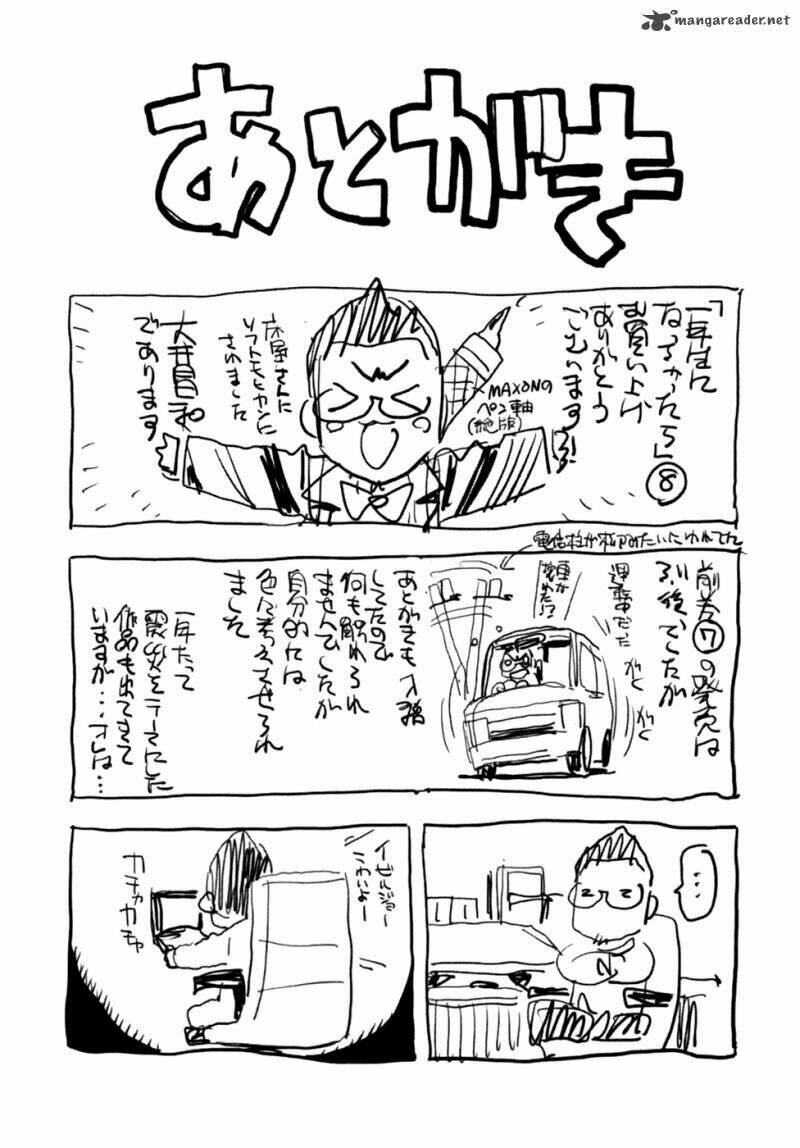 mangareader.net
あとがき
「一年生に
なっちゃったら」⑧
お買い上げ
ありがとう
ございます!!
MAXONの
ペン軸
(絶版)
床屋さんに
ソフトモヒカンに
されました
大井昌和
であります
電信柱が
みたいにゆれてた
前巻⑦の発売は
でしたが
運転中だった
車が
壊れた!?
ガク
ガク
あとがきも入稿
してたので
何も触れられ
ませんでしたが
自分的には
色々考えさせられ
ました
一年たって
震災をテーマにした
作品も出てきて
いますが・・・オレは・・・
・・・
イゼルジョー
こわいよー
カチャカチャ